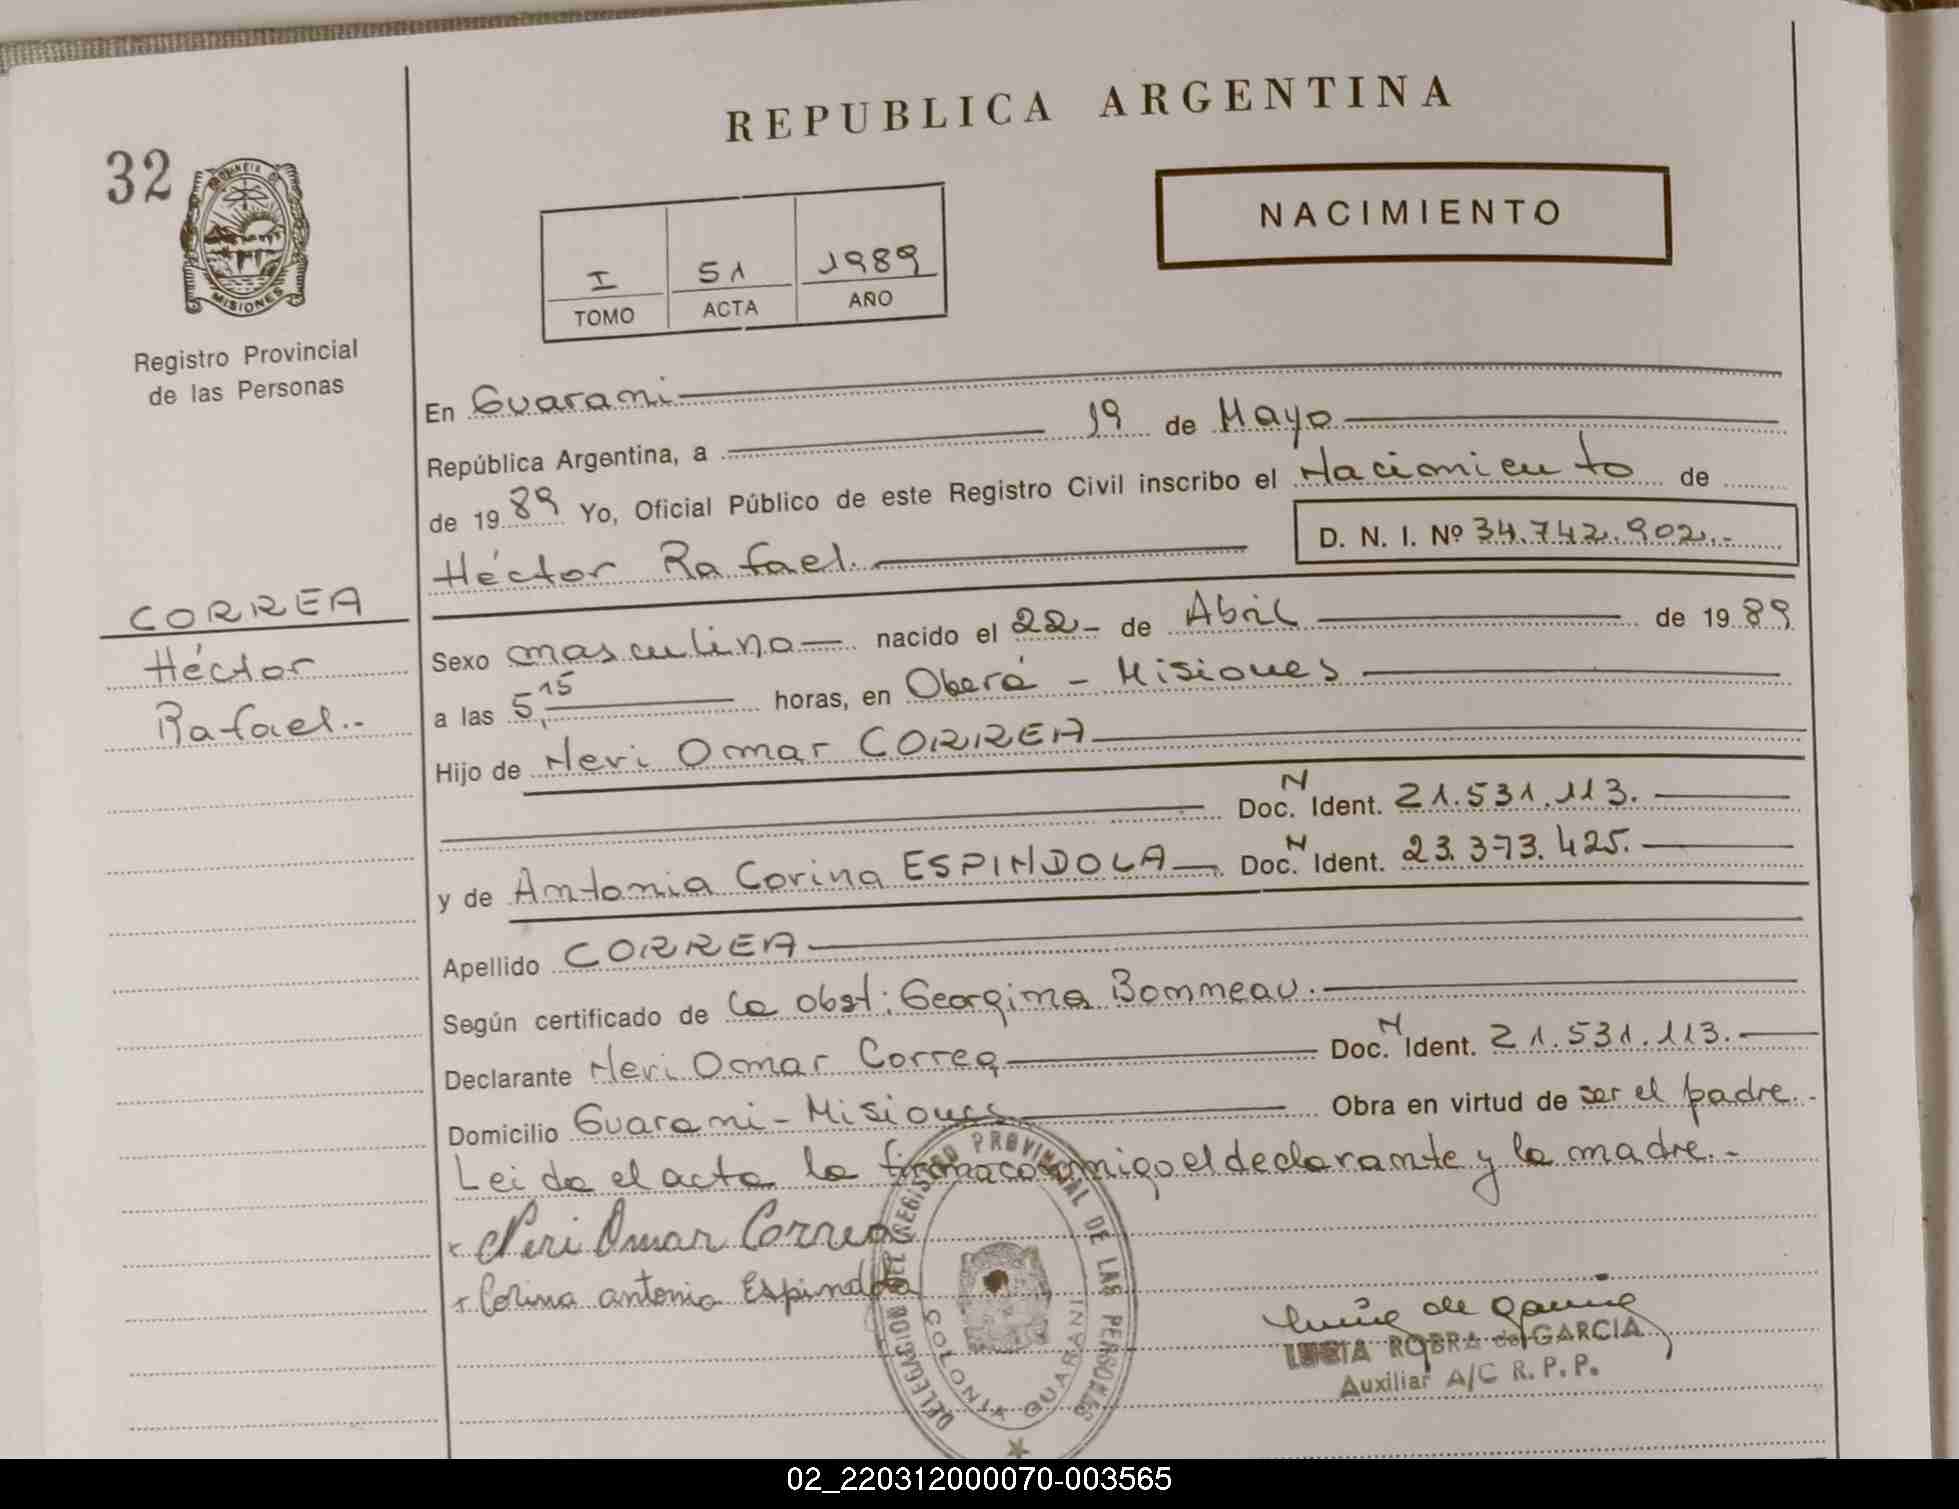 REPUBLICA ARGENTINA
32
PROVINCIA DE
MISIONES
Registro Provincial
de las Personas
NACIMIENTO
I 51 1989
TOMO ACTA AÑO
En Guarani
República Argentina, a 19 de Mayo
de 1989 Yo, Oficial Público de este Registro Civil inscribo el Nacimiento de
Héctor Rafael. D. N. I. Nº 34.742.902.-
CORREA
Héctor
Rafael.-
Sexo masculino nacido el 22- de Abril de 1989
a las 5,15 horas, en Oberá - Misiones
Hijo de Neri Omar CORREA
Doc. N Ident. 21.531.113.
y de Antonia Corina ESPINDOLA Doc. N Ident. 23.373.425.
Apellido CORREA
Según certificado de la obst: Georgina Bommeau.
Declarante Neri Omar Correa Doc. N Ident. 21.531.113.
Domicilio Guarani - Misiones Obra en virtud de ser el padre.-
Leida el acta la firma conmigo el declarante y la madre.-
x Neri Omar Correa
x Corina antonia Espindola
DELEGACION DEL REGISTRO PROVINCIAL DE LAS PERSONAS
COLONIA GUARANI
LUCIA ROBRA de GARCIA
Auxiliar A/C R. P. P.
02_220312000070-003565